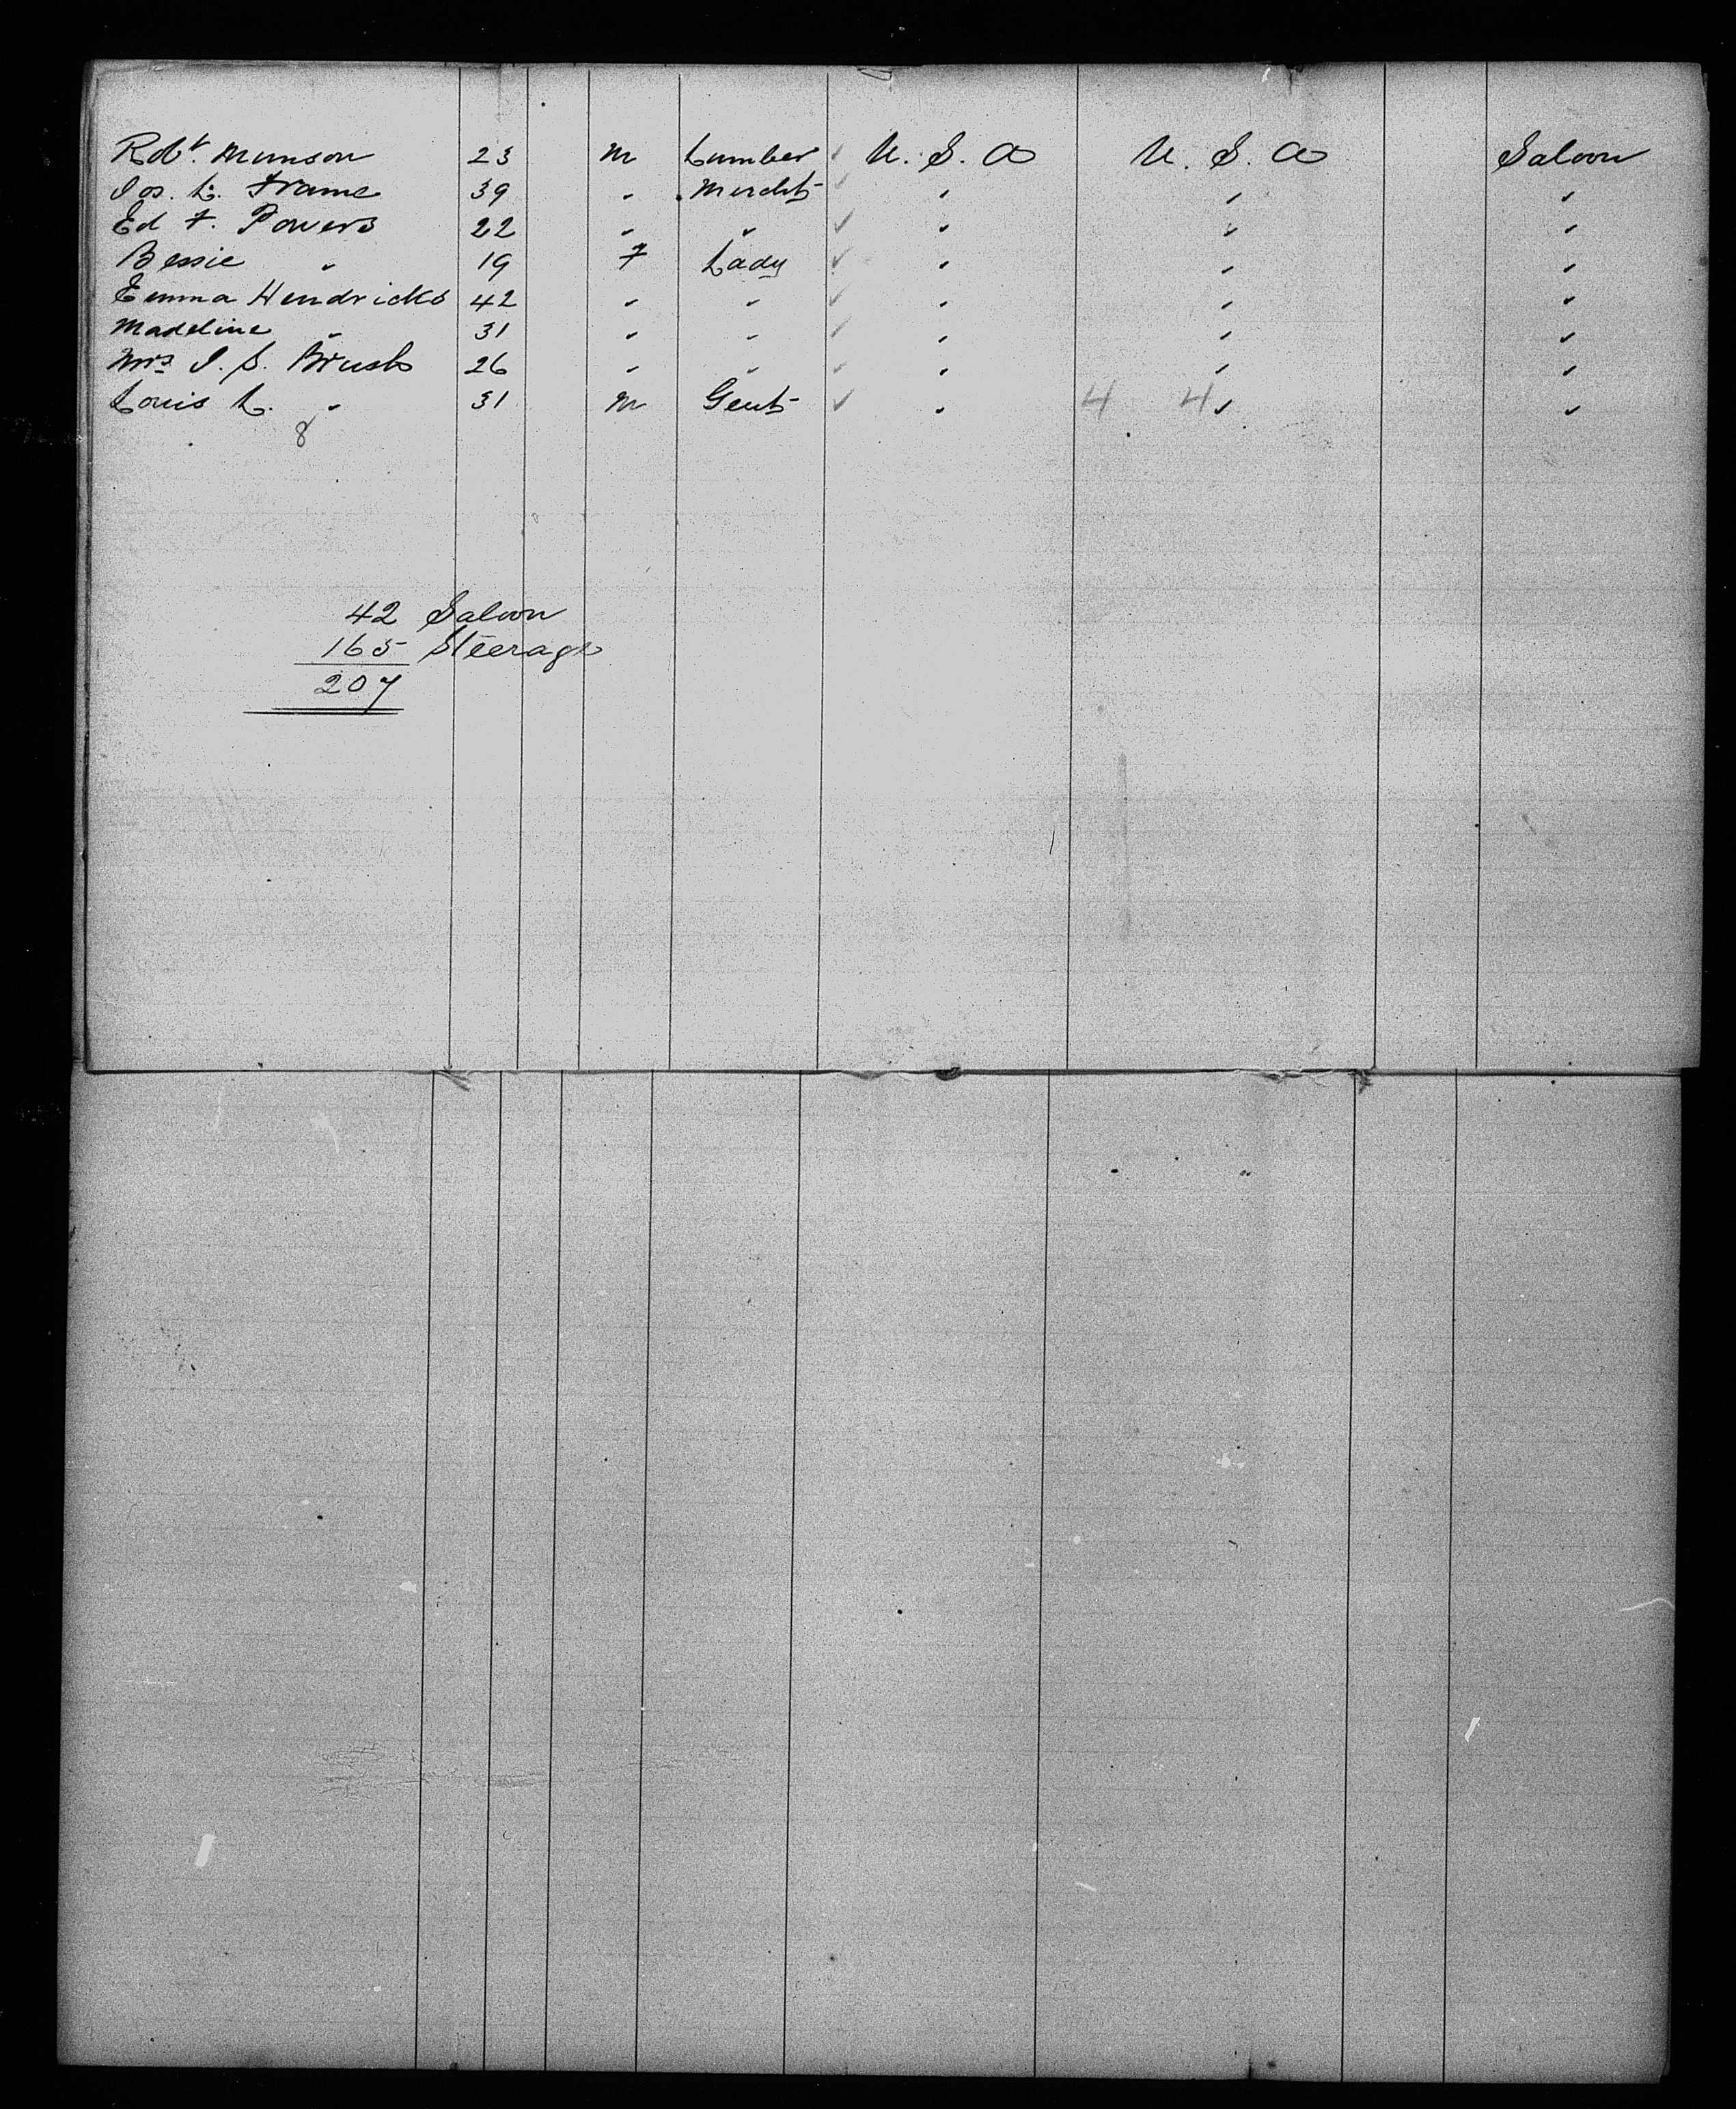 Robt. Munson 23 m Lumber ✓ U. S. A U. S. A Saloon
Jos. L. Frame 39 " Mercht ✓ " " "
Ed F. Powers 22 " " ✓ " " "
Bessie " 19 F Lady ✓ " " "
Emma Hendricks 42 " " ✓ " " "
Madeline " 31 " " ✓ " " "
Mrs J. S. Brush 26 " " ✓ " " "
Louis L. " 31 m Gent ✓ " 4 4 " "
8
42 Saloon
165 Steerage
207